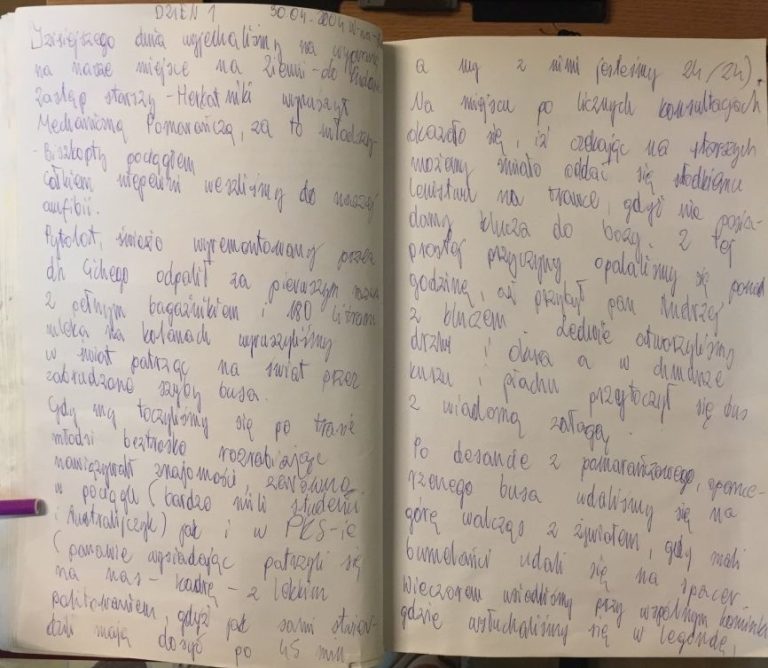 DZIEŃ 1 30.04.2004
Dzisiejszego dnia wyjechaliśmy na wyprawę
na nasze miejsce na Ziemi - do
Zastęp starszy - Herbatniki wyruszył
Mechaniczną Pomarańczą, za to młodszy -
- Biszkopty pociągiem
Całkiem niepewni weszliśmy do naszej
amfibii.
świeżo wyremontowany przez
dh Cichego odpalił za pierwszym razem
z pełnym bagażnikiem i 180 litrami
mleka na kolanach wyruszyliśmy
w świat patrząc na świat przez
szyby busa.
Gdy my toczyliśmy się po trasie
młodsi beztrosko rozrabiając
nawiązywali znajomości, zarówno
w pociągu (bardzo mili studenci
i Australijczyk) jak i w PKS-ie
(panowie wysiadając patrzyli się
na nas - kadrę - z lekkim
politowaniem, gdyż jak sami stwier-
dzili mają dosyć po 45 min.
a my z nimi jesteśmy 24/24).
Na miejscu po licznych konsultacjach
okazało się, iż czekając na starszych
możemy śmiało oddać się słodkiemu
lenistwu na trawce, gdyż nie posia-
damy klucza do bazy. Z tej
prostej przyczyny opalaliśmy się ponad
godzinę, aż przybył pan Andrzej
z kluczem. Ledwie otworzyliśmy
drzwi i okna a w chmurze
kurzu i piachu przytoczył się bus
z wiadomą załogą.
Po desancie z pomarańczowego,
rzonego busa udaliśmy się na
górę walcząc z żywiołem, gdy mali
bumelanci udali się na spacer
wieczorem usiedliśmy przy wspólnym kominku
gdzie wsłuchaliśmy się w legendę,